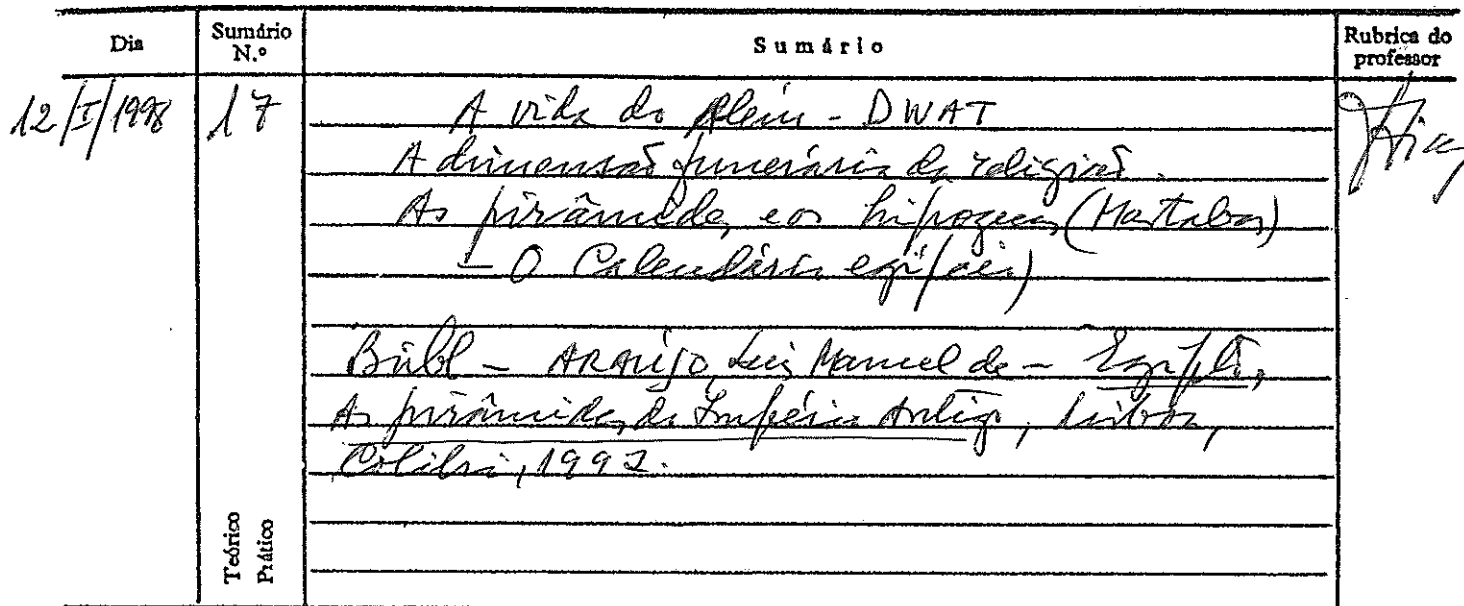 Dia
Sumário N.º
Sumário
Rubrica do professor
12/I/1998
17
A vida do Além - DWAT
A dimensão funerária da religião.
As pirâmides e os hipogeus (Mastabas)
- O Calendário egípcio)
Bibl - ARAÚJO, Luís Manuel de - Egipto,
As pirâmides do Império Antigo, Lisboa,
Colibri, 1992.
Teórico
Prático